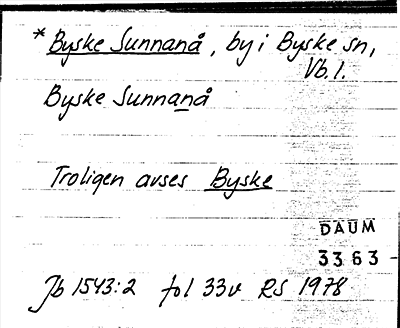 * Byske Sunnanå, by i Byske sn,
Vb. l.
Byske Sunnanå
Troligen avses Byske
DAUM
3363 -
Jb 1543:2 fol 33v RS 1978